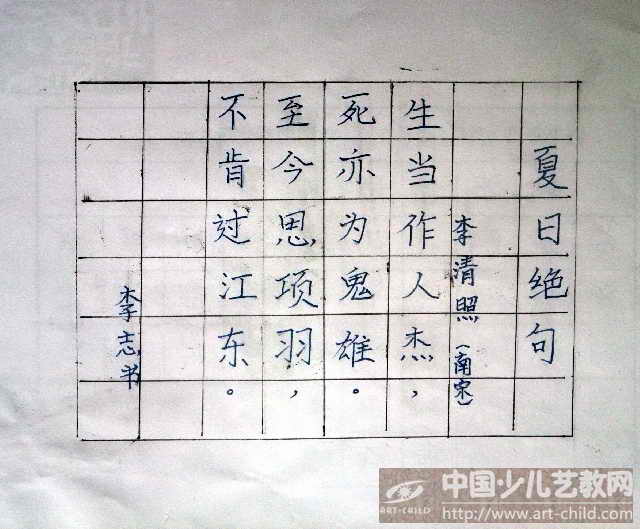 夏日绝句
李清照(南宋)
生当作人杰，
死亦为鬼雄。
至今思项羽，
不肯过江东。
李志书
中国少儿艺教网
ART-CHILD
http://www.art-child.com